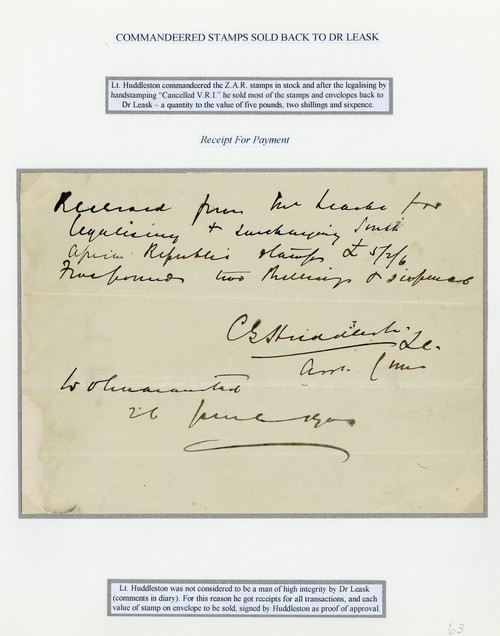 COMMANDEERED STAMPS SOLD BACK TO DR LEASK
Lt. Huddleston commandeered the Z.A.R. stamps in stock and after the legalising by
handstamping "Cancelled V.R.I." he sold most of the stamps and envelopes back to
Dr Leask – a quantity to the value of five pounds, two shillings and sixpence.
Receipt For Payment
Received from Mr Leask for
legalising & surcharging South
African Republic stamps £ 5/2/6
Five pounds two shillings & sixpence
C E Huddleston Lt.
Asst.
26 June 1900
Lt. Huddleston was not considered to be a man of high integrity by Dr Leask
(comments in diary). For this reason he got receipts for all transactions, and each
value of stamp on envelope to be sold, signed by Huddleston as proof of approval.
63